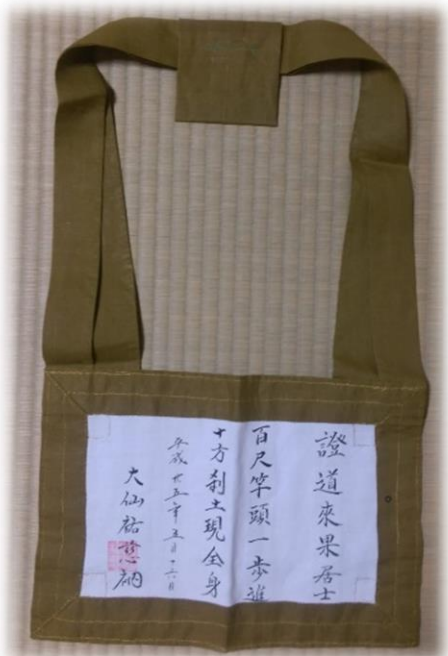 證道來果居士
百尺竿頭一歩進
十方刹土現全身
平成廿五年五月十六日
大仙祐 衲